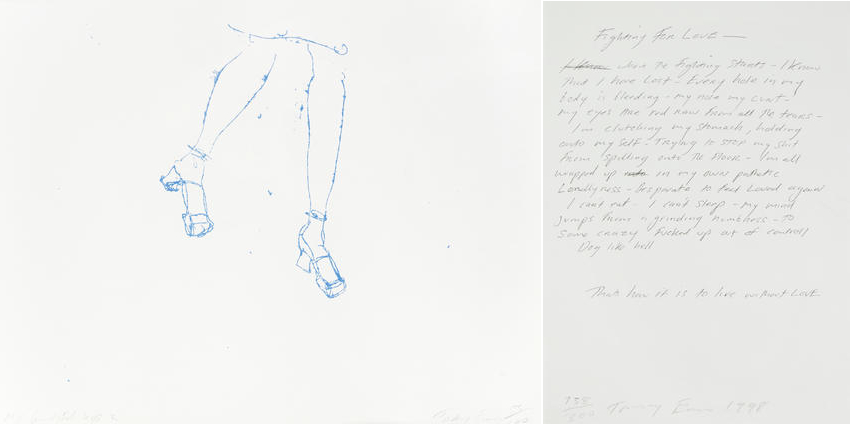 Fighting For Love —
when The Fighting Starts - I know
That I have Lost - Every hole in my
body is Bleeding - my nose my cunt -
my eyes Are red raw From all The tears -
I'm clutching my stomach, holding
onto myself - Trying to stop my shit
From spilling onto The Floor - I'm all
wrapped up in my own pathetic
Lonelyness - desparate to Feel Loved again
I cant eat - I cant sleep - my mind
Jumps From a grinding numbness - To
Some crazy Fucked up out of control
Dog like hell
Thats how it is to live without Love
Tracey Emin 1998